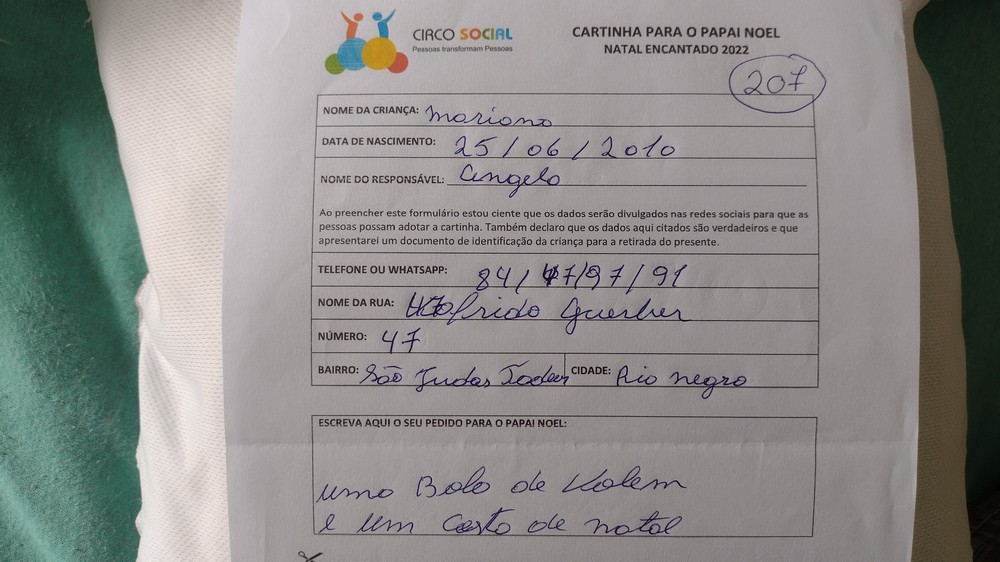 CIRCO SOCIAL
Pessoas transformam Pessoas
CARTINHA PARA O PAPAI NOEL
NATAL ENCANTADO 2022
207
NOME DA CRIANÇA: Mariana
DATA DE NASCIMENTO: 25/06/2010
NOME DO RESPONSÁVEL: Angela
Ao preencher este formulário estou ciente que os dados serão divulgados nas redes sociais para que as
pessoas possam adotar a cartinha. Também declaro que os dados aqui citados são verdadeiros e que
apresentarei um documento de identificação da criança para a retirada do presente.
TELEFONE OU WHATSAPP: 84/47/97/91
NOME DA RUA: Guerber
NÚMERO: 47
BAIRRO: São Judas Tadeu CIDADE: Rio negro
ESCREVA AQUI O SEU PEDIDO PARA O PAPAI NOEL:
uma Bola de Volem
e um Casta de natal